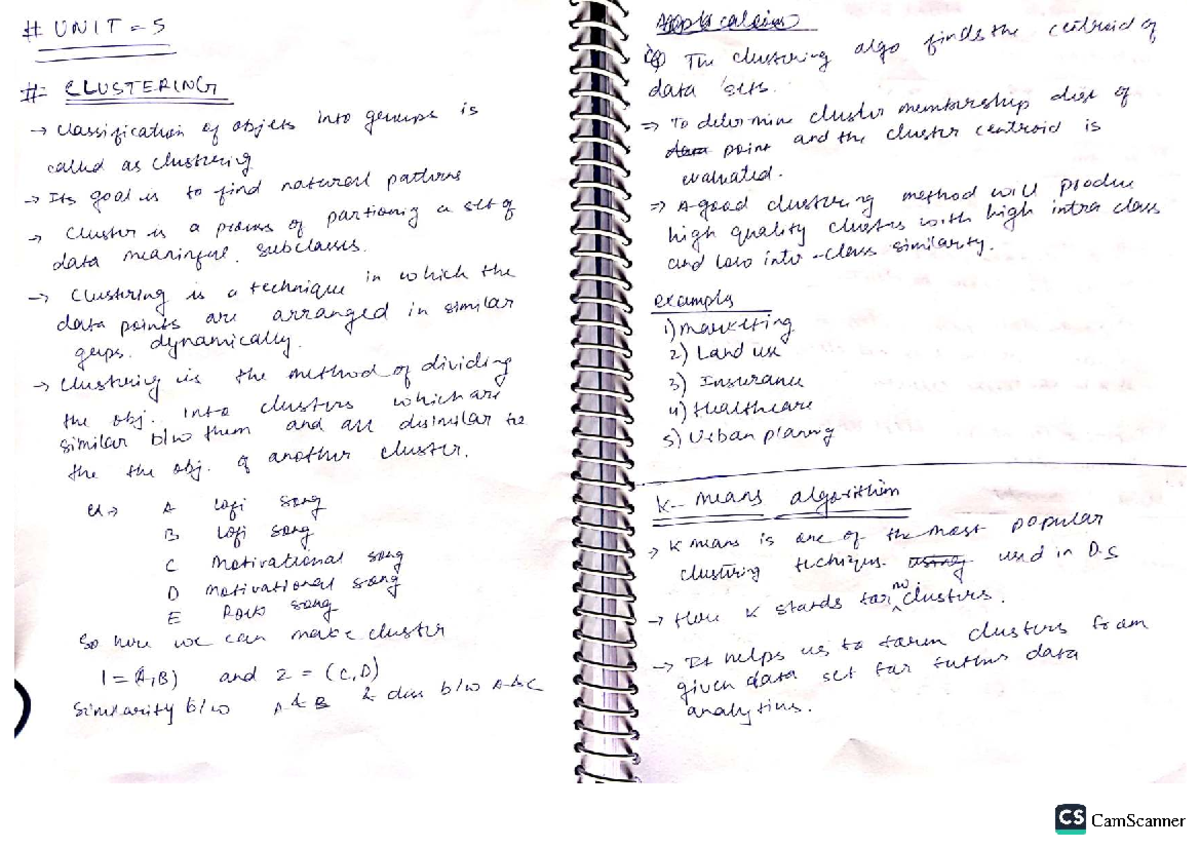 # UNIT = 5
# CLUSTERING
→ Classification of objets into geroups is
called as clustering
→ Its goal is to find natural patterns
→ Cluster is a process of partioning a set of
data meaningful. subclasses.
→ Clustering is a technique in which the
data points are arranged in similar
geups. dynamically.
→ Clustering is the method of dividing
the obj. into clusters which are
similar b/w them and are disimilar to
the the obj. of another cluster.
A lofi song
B Lofi song
C Motivational song
D Motivational song
E Rock song
So here we can make cluster
1 = (A,B) and 2 = (C,D)
Similarity b/w A & B & diss b/w A & C
Application
The clustering algo finds the centroid of
data sets.
⇒ To determine cluster membership dist of
data point and the cluster centroid is
evaluated.
⇒ A good clustering method will produce
high quality clusters with high intra class
and low inter-class similarity.
examples
1) Marketing
2) Land use
3) Insurance
4) Healthcare
5) Urban planing
K- Means algorithm
→ K means is one of the most popular
clustering techniques. using used in D.S
→ Here K stands for no clusters.
→ It helps us to form clusters from
given data set for futher data
analytics.
CS CamScanner